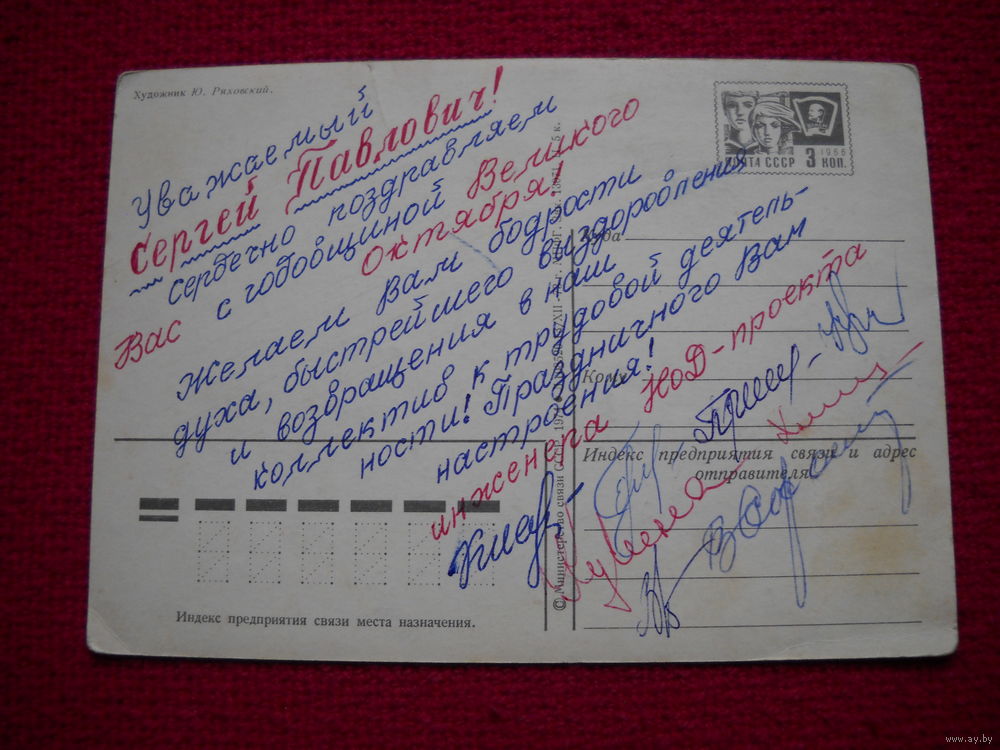 Художник Ю. Ряховский.
Уважаемый
Сергей Павлович!
сердечно поздравляем
Вас с годовщиной Великого
октября!
Желаем Вам бодрости
духа, быстрейшего выздоровления
и возвращения в наш
коллектив к трудовой деятель-
ности! Праздничного Вам
настроения!
инженера НОД-проекта
ПОЧТА СССР
1966
3 КОП.
Куда
Кому
Индекс предприятия связи и адрес
отправителя
© Министерство связи СССР
Индекс предприятия связи места назначения.
www.ay.by